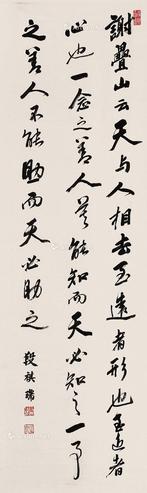 謝疊山云天与人相去至遠者形也至近者
心也一念之善人莫能知而天必知之一事
之善人不能助而天必助之
段祺瑞